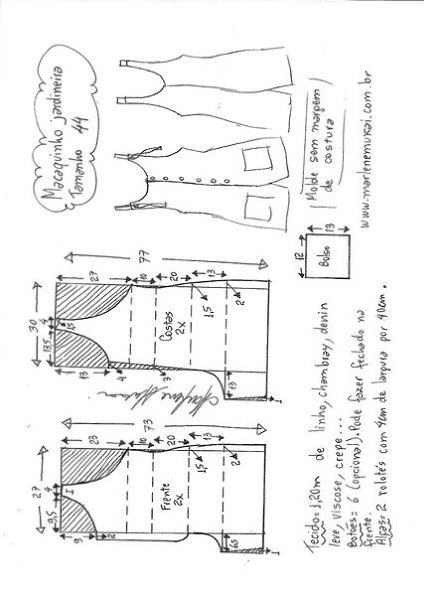 Macaquinho jardineira
Tamanho 44
Molde sem margem
de costura
www.marlenemukai.com.br
77
27
10
20
13
30
4
13,5
Costas
2x
1,5
2
13
4
3
13
1
12
13
Bolso
Marlene Mukai
73
23
10
20
13
27
4
9,5
1
Frente
2x
1,5
2
9
2
6,5
1
Tecido= 1,20m de linho, chambray, denin
leve, viscose, crepe...
Botões= 6 (opcional). Pode fazer fechado na
frente.
Alças= 2 rolotês com 4cm de largura por 40cm.